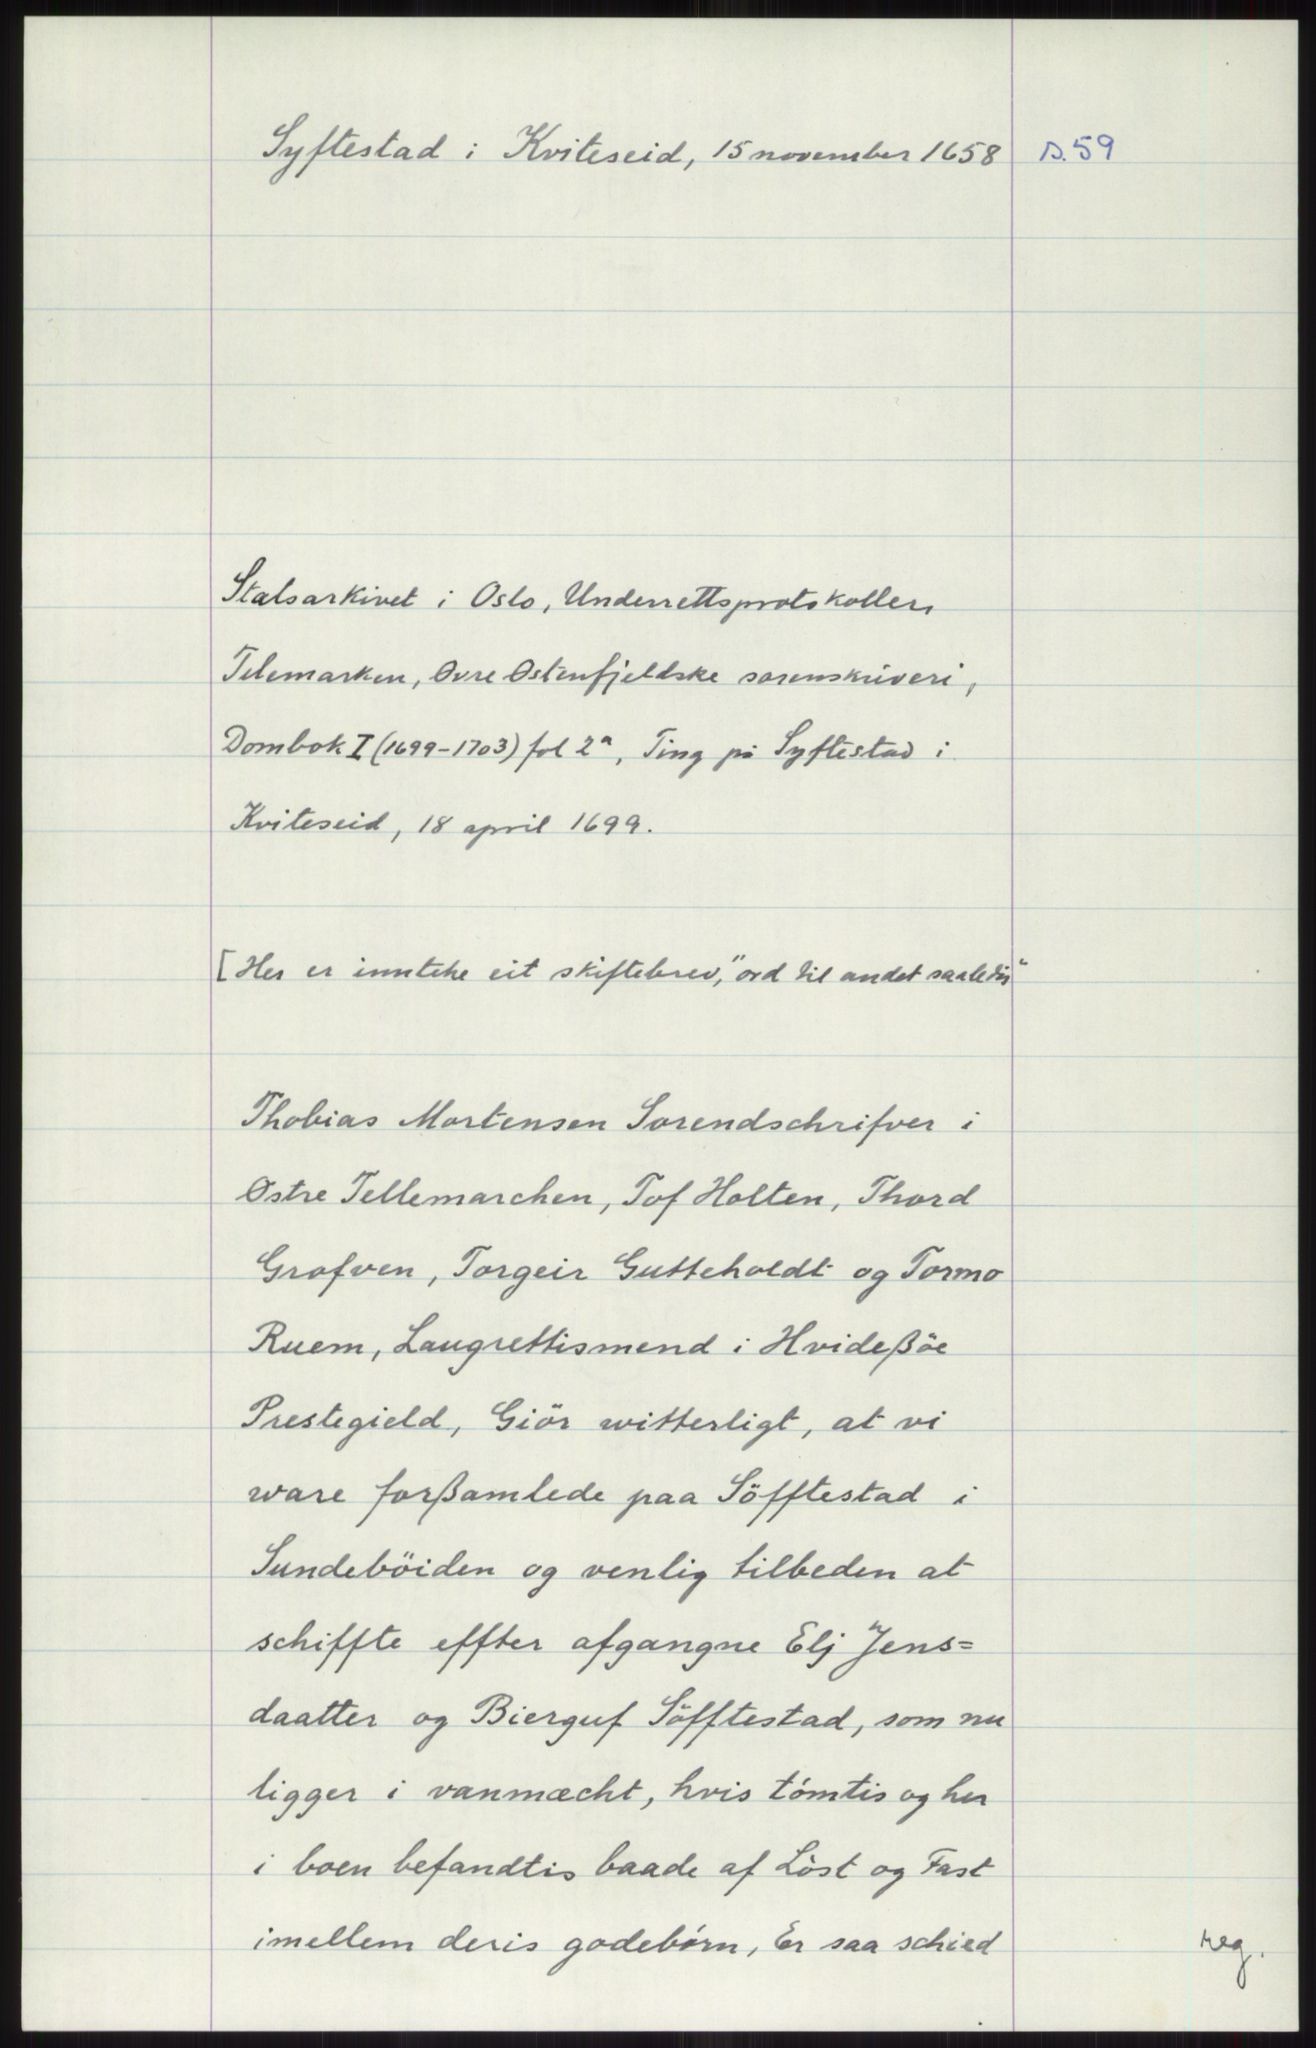 Syftestad i Kviteseid, 15 november 1658 s. 59
Statsarkivet i Oslo, Underrettsprotokoller,
Telemarken, Øvre Østenfjeldske sorenskriveri,
Dombok I (1699-1703) fol 2a, Ting på Syftestad i
Kviteseid, 18 april 1699.
[Her er innteke eit skiftebrev, "ord til andet saaledis"
Thobias Mortensen Sorendschrifver i
Østre Tellemarchen, Tof Holten, Thord
Grofven, Torgeir Gutteholdt og Tormo
Ruem, Laugrettismend i Hvideßöe
Prestegield, Giör witterligt, at vi
ware forßamlede paa Söfftestad i
Sundeböiden og venlig tilbeden at
schiffte effter afgangne Elj Jens=
daatter og Bierguf Söfftestad, som nu
ligger i vanmæcht, hvis tómtis og her
i boen befandtis baade af Lòst og Fast
imellem deris godebórn, Er saa schied
reg.